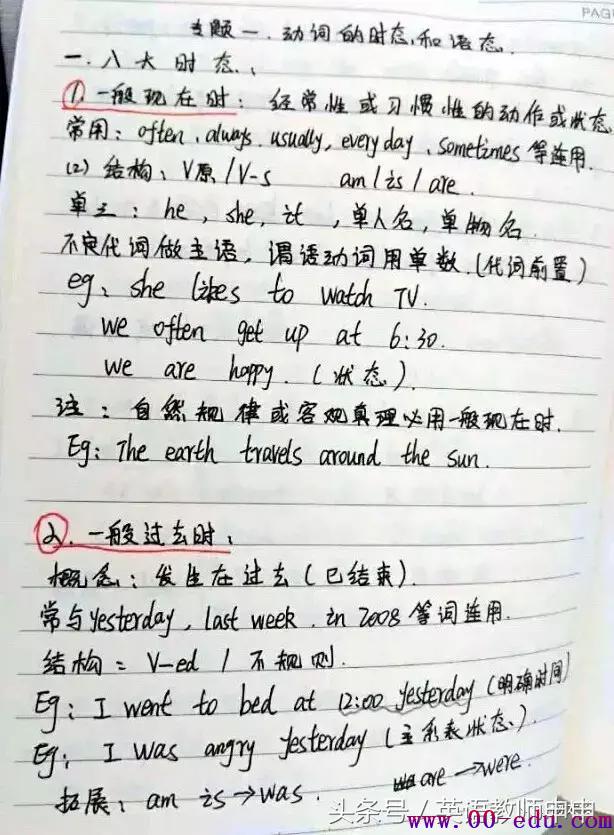 PAG
专题一.动词的时态和语态.
一.八大时态:
①.一般现在时:经常性或习惯性的动作或状态
常用:often、always、usually,everyday、sometimes等连用.
(2)结构:V原/V-s am/is/are.
单三:he,she,it,单人名,单物名.
不定代词做主语,谓语动词用单数.(代词前置)
eg:she likes to watch TV.
we often get up at 6:30.
we are happy.(状态).
注:自然规律或客观真理必用一般现在时.
Eg:The earth travels around the sun.
②.一般过去时:
概念:发生在过去(已结束).
常与yesterday,last week.in 2008等词连用.
结构=V-ed/不规则.
Eg:I went to bed at 12:00 yesterday(明确时间)
Eg:I was angry yesterday(主系表状态).
拓展:am is→was. are→were.
头条号/英语教师
www.00-edu.com